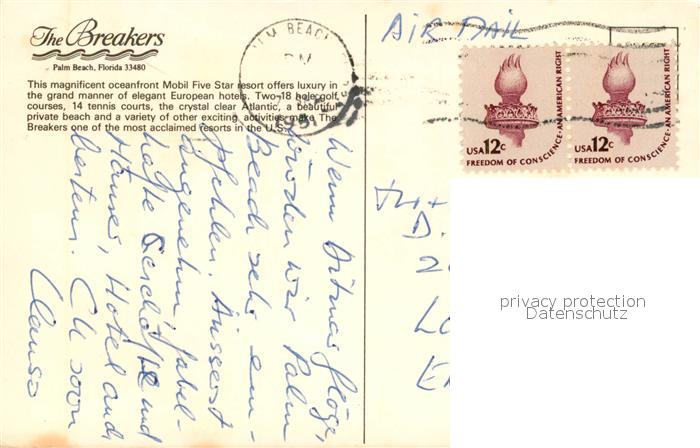 The Breakers
Palm Beach, Florida 33480
This magnificent oceanfront Mobil Five Star resort offers luxury in
the grand manner of elegant European hotels. Two 18 hole golf
courses, 14 tennis courts, the crystal clear Atlantic, a beautiful
private beach and a variety of other exciting activities make The
Breakers one of the most acclaimed resorts in the U.S.
PALM BEACH
PM
AIR MAIL
USA 12c
FREEDOM OF CONSCIENCE-AN AMERICAN RIGHT
USA 12c
FREEDOM OF CONSCIENCE-AN AMERICAN RIGHT
Wenn
würden wir Palm
Beach sehr em-
pfehlen. Äusserst
angenehm, fabel-
hafte Geschäfte und
Häuser, Hotel and.
bestens. CU soon
D.
2
Lo
E
privacy protection
Datenschutz